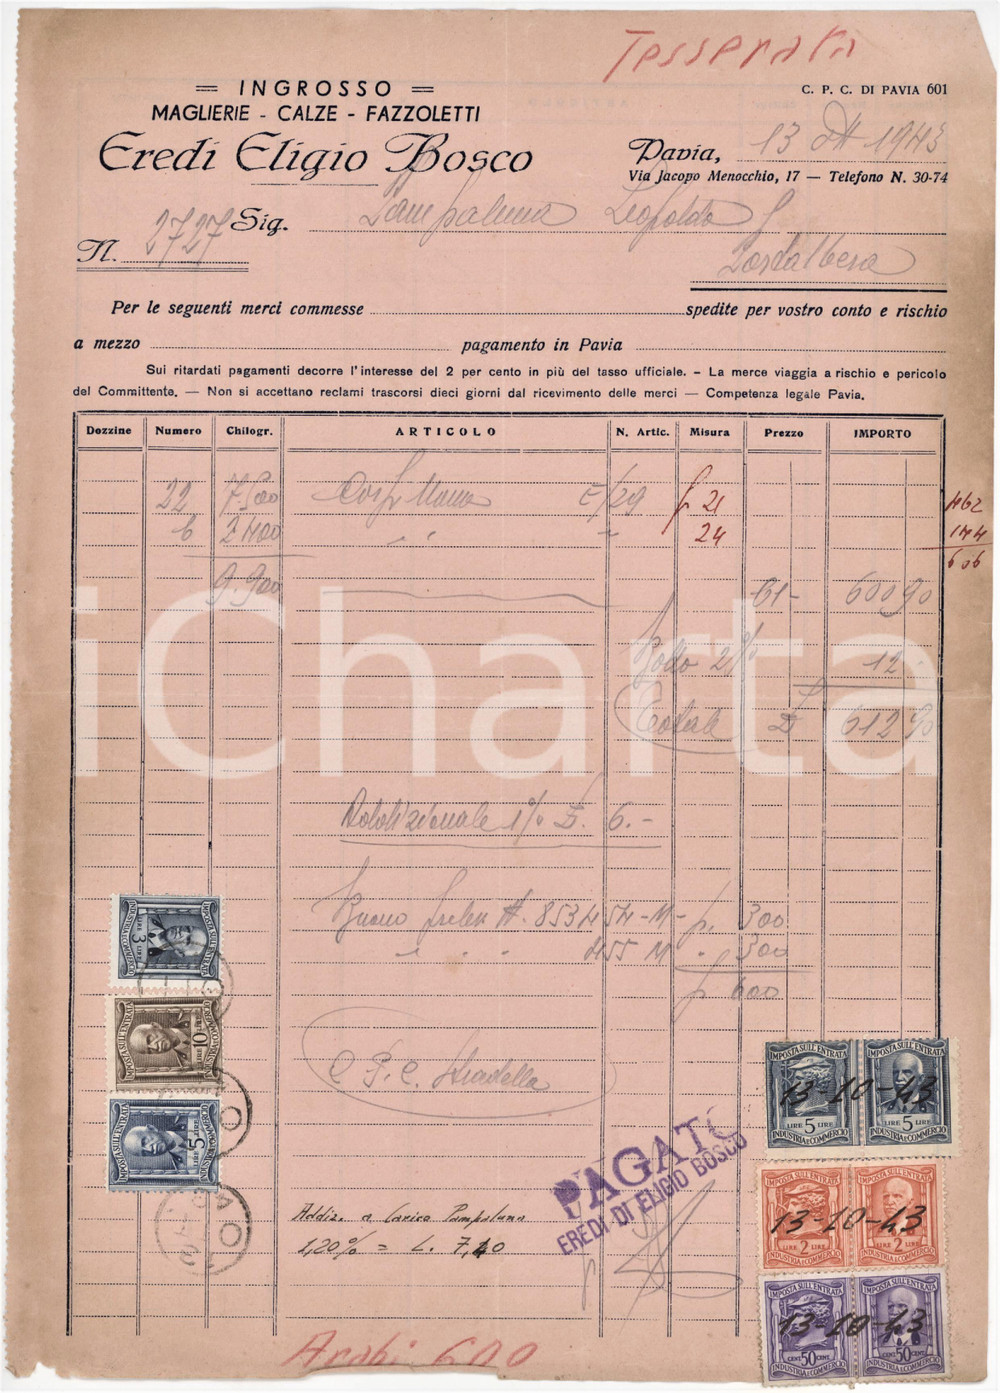 Tesserata
= INGROSSO =
MAGLIERIE - CALZE - FAZZOLETTI
Eredi Eligio Bosco
C. P. C. DI PAVIA 601
Pavia, 13 Ott 1943
Via Jacopo Menocchio, 17 — Telefono N. 30-74
N. 2727
Sig. Pampaluna Leopoldo
Portalbera
Per le seguenti merci commesse spedite per vostro conto e rischio
a mezzo pagamento in Pavia
Sui ritardati pagamenti decorre l'interesse del 2 per cento in più del tasso ufficiale. - La merce viaggia a rischio e pericolo
del Committente. — Non si accettano reclami trascorsi dieci giorni dal ricevimento delle merci — Competenza legale Pavia.
Dozzine Numero Chilogr. ARTICOLO N. Artic. Misura Prezzo IMPORTO
22 7.500 E/29 p. 21 462
6 2.400 " " " 24 144
606
9.900 61- 600 90
Bollo 2% 12
Totale £ 612 90
Addizionale 1% £. 6.-
Buono N. 853454-M- p. 300
" " 455 M " 300
p. 600
C P. C. Stradella
PAGATO
EREDI DI ELIGIO BOSCO
Addiz. a Carico Pampaluna
1,20% = L. 7,40
Arabi 600
IMPOSTA SULL'ENTRATA
LIRE 3 LIRE
INDUSTRIA E COMMERCIO
IMPOSTA SULL'ENTRATA
LIRE 10 LIRE
INDUSTRIA E COMMERCIO
IMPOSTA SULL'ENTRATA
LIRE 5 LIRE
INDUSTRIA E COMMERCIO
IMPOSTA SULL'ENTRATA IMPOSTA SULL'ENTRATA
13-10-43
LIRE 5 LIRE LIRE 5 LIRE
INDUSTRIA E COMMERCIO INDUSTRIA E COMMERCIO
IMPOSTA SULL'ENTRATA IMPOSTA SULL'ENTRATA
13-10-43
LIRE 2 LIRE LIRE 2 LIRE
INDUSTRIA E COMMERCIO INDUSTRIA E COMMERCIO
IMPOSTA SULL'ENTRATA IMPOSTA SULL'ENTRATA
13-10-43
CENT. 50 CENT. CENT. 50 CENT.
INDUSTRIA E COMMERCIO INDUSTRIA E COMMERCIO
iCharta